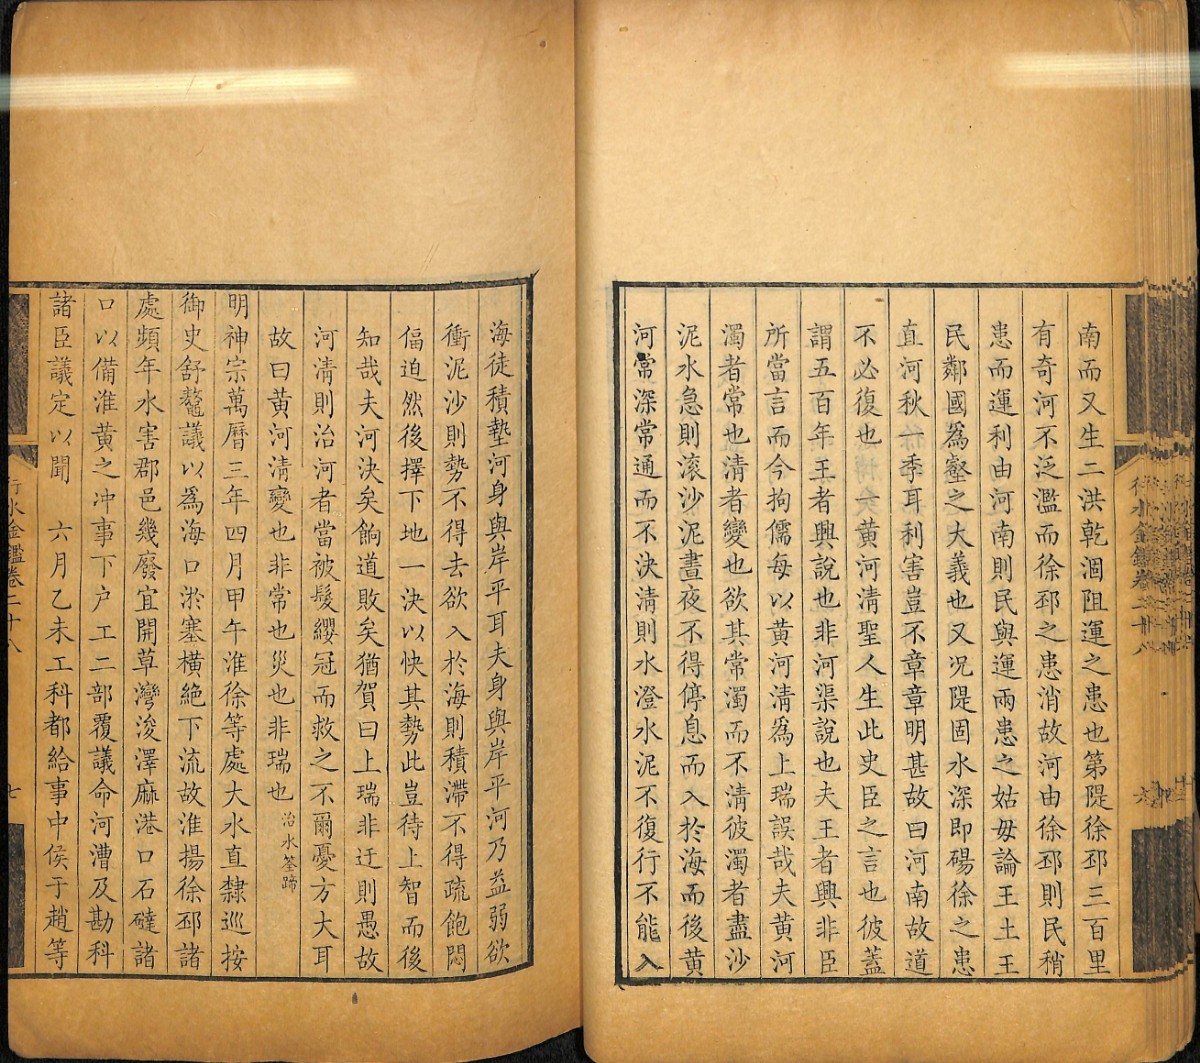 南而又生二洪乾涸阻運之患也第隄徐邳三百里
有奇河不泛濫而徐邳之患消故河由徐邳則民稍
患而運利由河南則民與運兩患之姑毋論王土王
民鄰國爲壑之大義也又况隄固水深即碭徐之患
直河秋一季耳利害豈不章章明甚故曰河南故道
不必復也　黃河清聖人生此史臣之言也彼蓋
謂五百年王者興說也非河渠說也夫王者興非臣
所當言而今拘儒每以黃河清爲上瑞誤哉夫黃河
濁者常也清者變也欲其常濁而不清彼濁者盡沙
泥水急則滚沙泥晝夜不得停息而入於海而後黃
河常深常通而不決清則水澄水泥不復行不能入
海徒積墊河身與岸平耳夫身與岸平河乃益弱欲
衝泥沙則勢不得去欲入於海則積滯不得疏飽悶
偪迫然後擇下地一決以快其勢此豈待上智而後
知哉夫河決矣餉道敗矣猶賀曰上瑞非迂則愚故
河清則治河者當被髮纓冠而救之不爾憂方大耳
故曰黃河清變也非常也災也非瑞也治水筌蹄
明神宗萬曆三年四月甲午淮徐等處大水直隸巡按
御史舒鰲議以爲海口淤塞橫絶下流故淮揚徐邳諸
處頻年水害郡邑幾廢宜開草灣浚澤麻港口石䃮諸
口以備淮黃之冲事下户工二部覆議命河漕及勘科
諸臣議定以聞　六月乙未工科都給事中侯于趙等
行水金鑑卷二十八
七